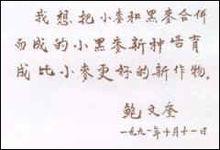 我想把小麥和黑麥合併
而成的小黑麥新种培育
成比小麥更好的新作物.
鮑文奎
一九九一年十月十一日